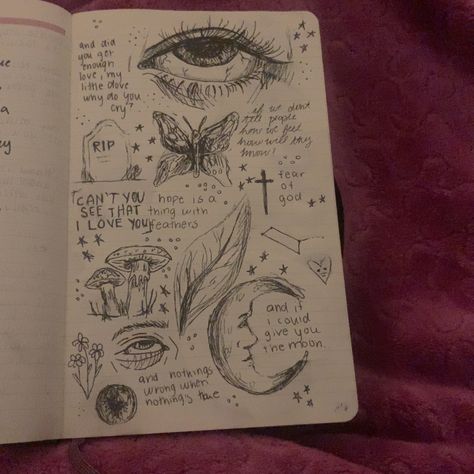 and did
you get
enough
love, my
little dove
why do you
cry?
if we don't
tell people
how we feel
how will they
know!
RIP
fear
of
god
"CAN'T YOU
SEE THAT
I LOVE YOU"
hope is a
thing with
feathers
and if
i could
give you
the moon
and nothings
wrong when
nothing's true
ey
a